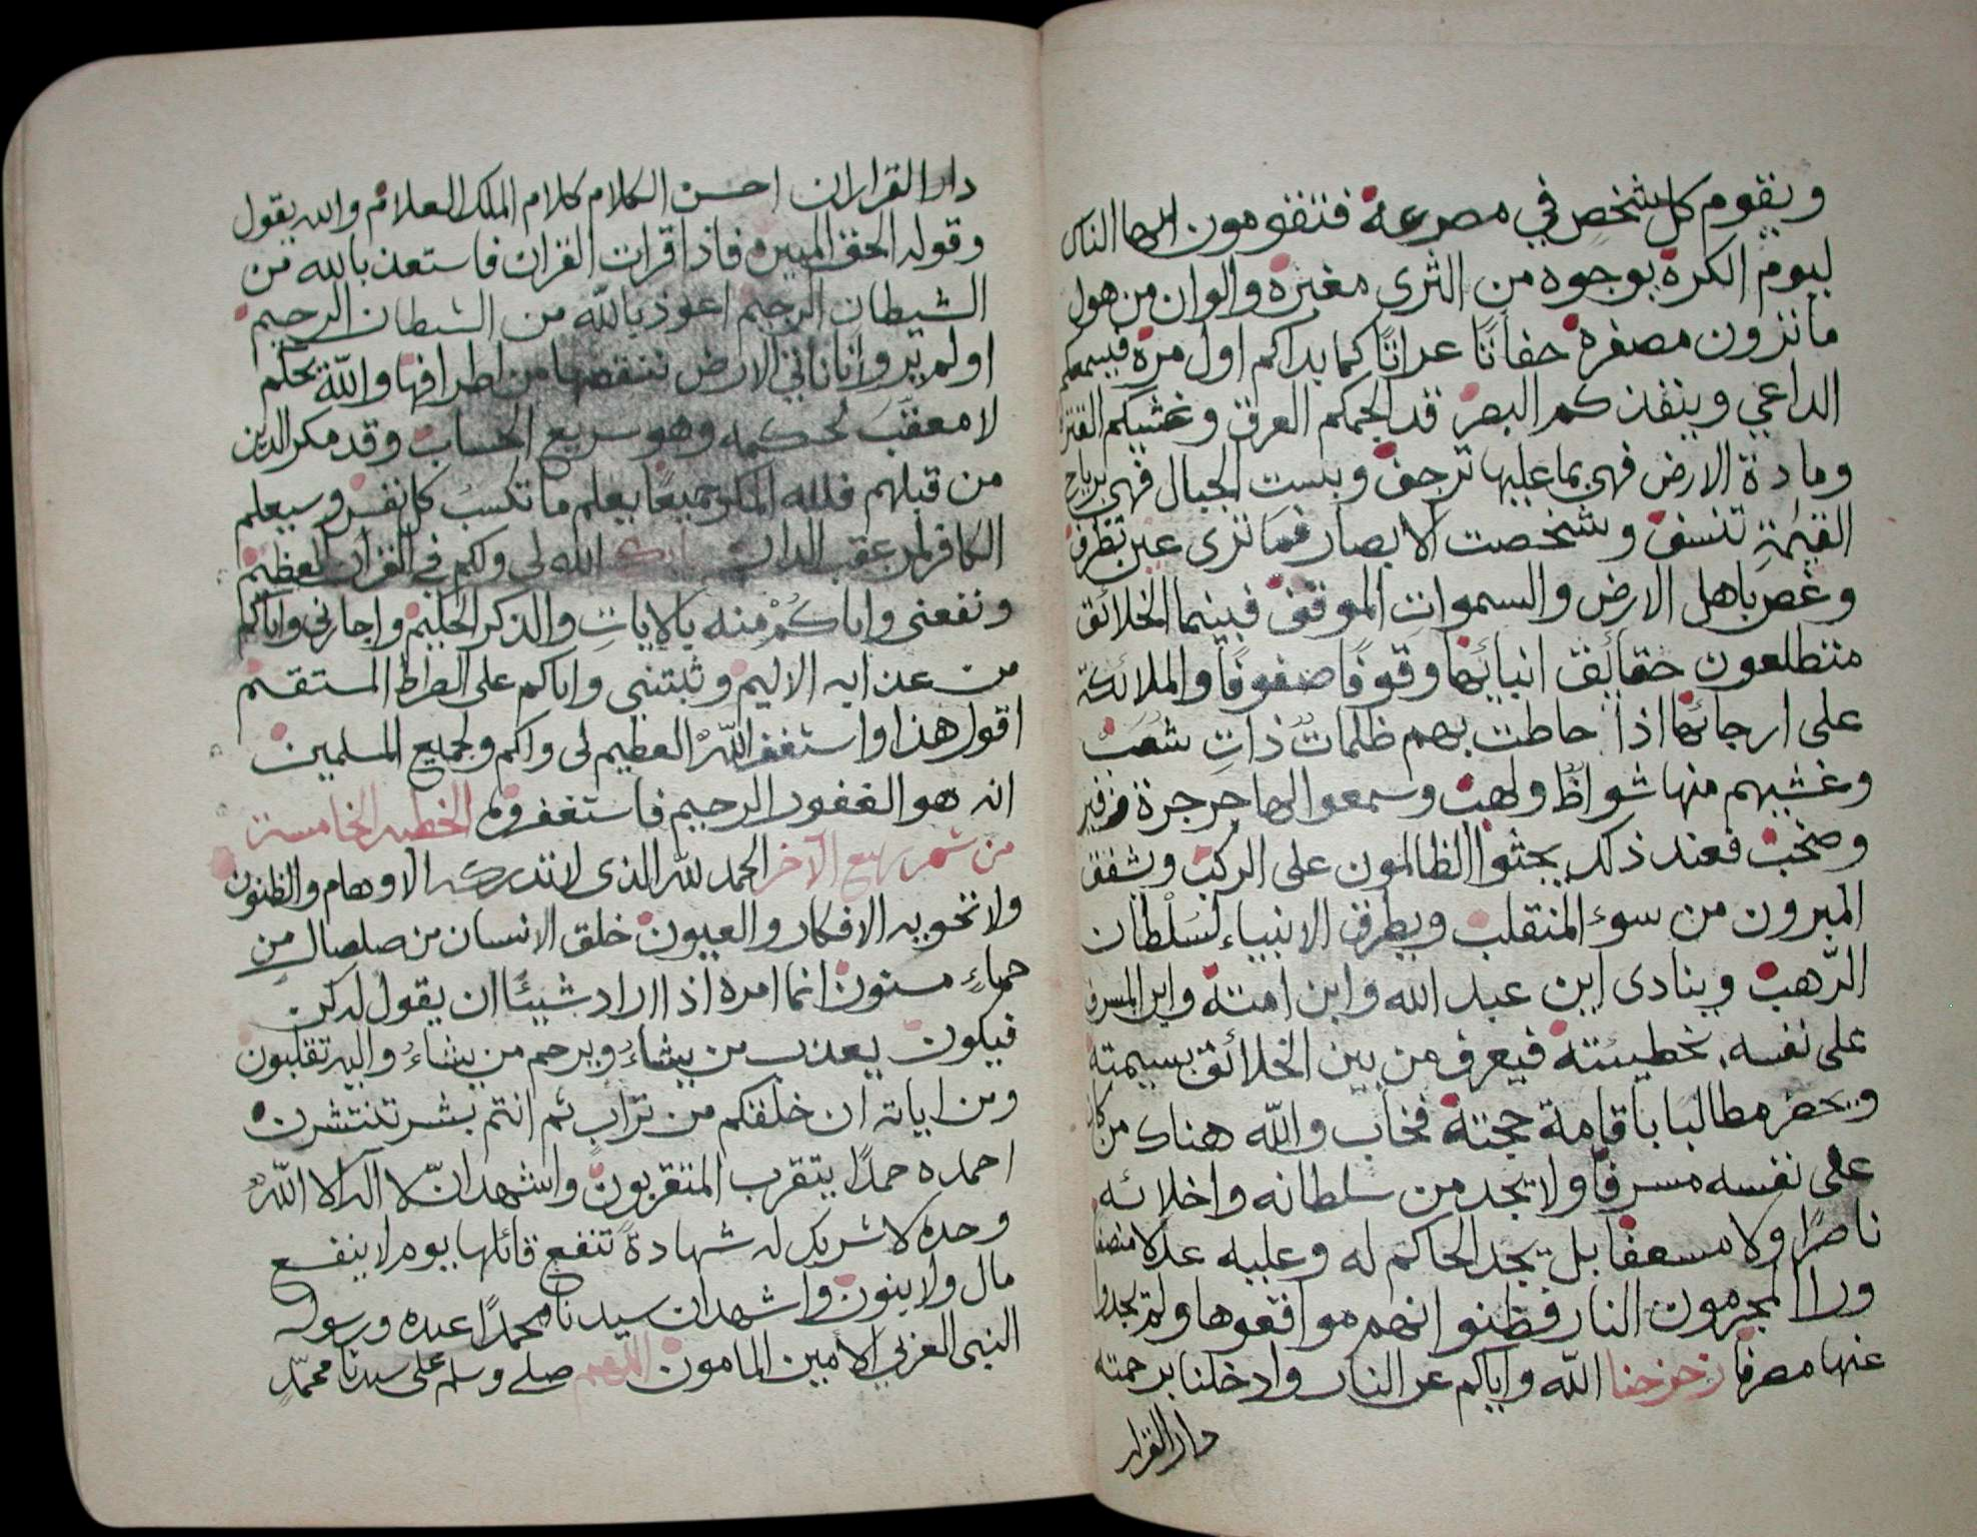 ويقوم كل شخص في مصرعه فتقومون ايها الناس
ليوم الكرة بوجوه من الثرى مغبرة والوان من هول
ما ترون مصفرة حفاتًا عراتًا كما بداكم اول مرة فيسمعكم
الداعي وينفذكم البصر قد الجمكم العرق وغشيكم القتر
ومادة الارض فهي بما عليها ترجف وبست الجبال فهي برياح
القيمة تنسف وشخصت الابصار فما ترى عين تطرف
وغص باهل الارض والسموات الموقف فبينما الخلائق
متطلعون حقائق انبائها وقوفًا صفوفًا والملائكة
على ارجائها اذا حاطت بهم ظلمات ذات شعب
وغشيهم منها شواظ ولهب وسمعوا لها جرجرة من زفير
وصخب فعند ذلك يجثوا الظالمون على الركب ويشفق
المبرون من سوء المنقلب ويطرق الانبياء لسلطان
الرهب وينادى اين عبد الله واين امته واين المسرف
على نفسه بخطيئته فيعرف من بين الخلائق بسيمته
ويحضر مطالبا باقامة حجته فخاب والله هناك من كان
على نفسه مسرفا ولا يجد من سلطانه واخلائه
ناصرًا ولا مسعفا بل يجد الحاكم له وعليه عدلا منصفا
ورا المجرمون النار فظنوا انهم مواقعوها ولم يجدوا
عنها مصرفا زحزحنا الله واياكم عن النار وادخلنا برحمته
دار القرار
دار القرار ان احسن الكلام كلام الملك العلام والله يقول
وقوله الحق المبين فاذا قرات القران فاستعذ بالله من
الشيطان الرجيم اعوذ بالله من الشيطان الرجيم
اولم يروا انا ناتي الارض ننقصها من اطرافها والله يحكم
لا معقب لحكمه وهو سريع الحساب وقد مكر الذين
من قبلهم فلله المكر جميعًا يعلم ما تكسب كل نفس وسيعلم
الكافر لمن عقب الدار بارك الله لي ولكم في القران العظيم
ونفعني واياكم منه بالايات والذكر الحكيم واجارني واياكم
من عذابه الاليم وثبتني واياكم على الصراط المستقيم
اقول هذا واستغفر الله العظيم لي ولكم ولجميع المسلمين
انه هو الغفور الرحيم فاستغفروه الخطبه الخامسة
من شهر ربيع الآخر الحمد لله الذى لا تدركه الاوهام والظنون
ولا تحويه الافكار والعيون خلق الانسان من صلصال من
حماءٍ مسنون انما امره اذا اراد شيئًا ان يقول له كن
فيكون يعذب من يشاء ويرحم من يشاء واليه تقلبون
ومن اياته ان خلقكم من تراب ثم انتم بشر تنتشرن
احمده حمدًا يتقرب المتقربون واشهد ان لا اله الا الله
وحده لا شريك له شهادة تنفع قائلها يوم لا ينفع
مال ولا بنون واشهد ان سيدنا محمدًا عبده ورسوله
النبي العربي الامين المامون اللهم صلي وسلم على سيدنا محمدٍ